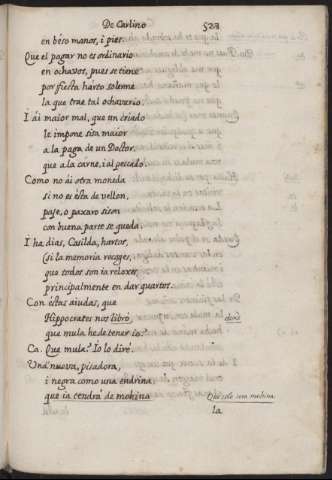 De Carlino
523
en béso manos, i pies.
Que el pagar no es ordinario
en ochavos, pues se tiene
por fiesta harto solemne
la que trae tal ochavario.
I ái maior mal, que un criado
le impone sisa maior
a la paga de un Doctor,
que a la carne, i al pescado.
Como no ái otra moneda
si no es ésta de vellon,
page, o paxaro sison
con buena parte se queda.
I he dias, Casilda, hartos,
(si la memoria recoges,
que todos son ia reloxes,
principalmente en dar quartos.
Con éstas aiudas, que
Hippocrates nos libró,
que mula he de tener io?
Ca. Que mula? Io lo diré.
Una nueva, pisadora,
i negra como una endrina
que ia tendrá de mohina
Que solo sera mohina
la